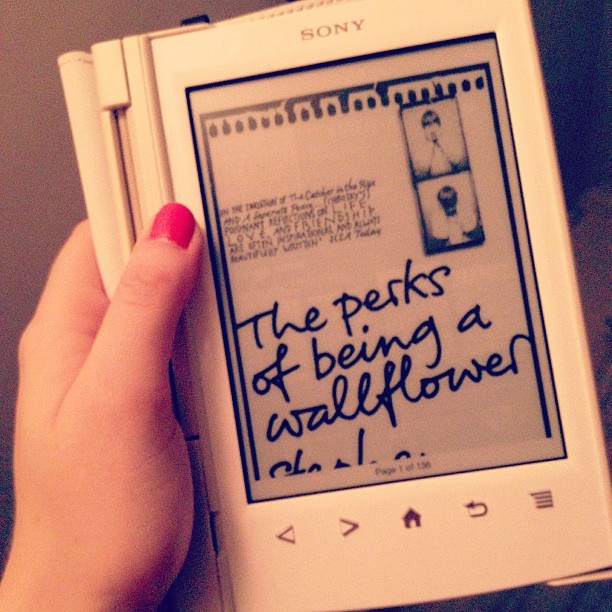 SONY
ON THE TRADITION OF The Catcher in the Rye
AND A Separate Peace... [CHBOSKY'S]
POIGNANT REFLECTIONS ON LIFE,
LOVE, AND FRIENDSHIP
ARE OFTEN INSPIRATIONAL AND ALWAYS
BEAUTIFULLY WRITTEN' USA Today
The perks
of being a
wallflower
Page 1 of 136